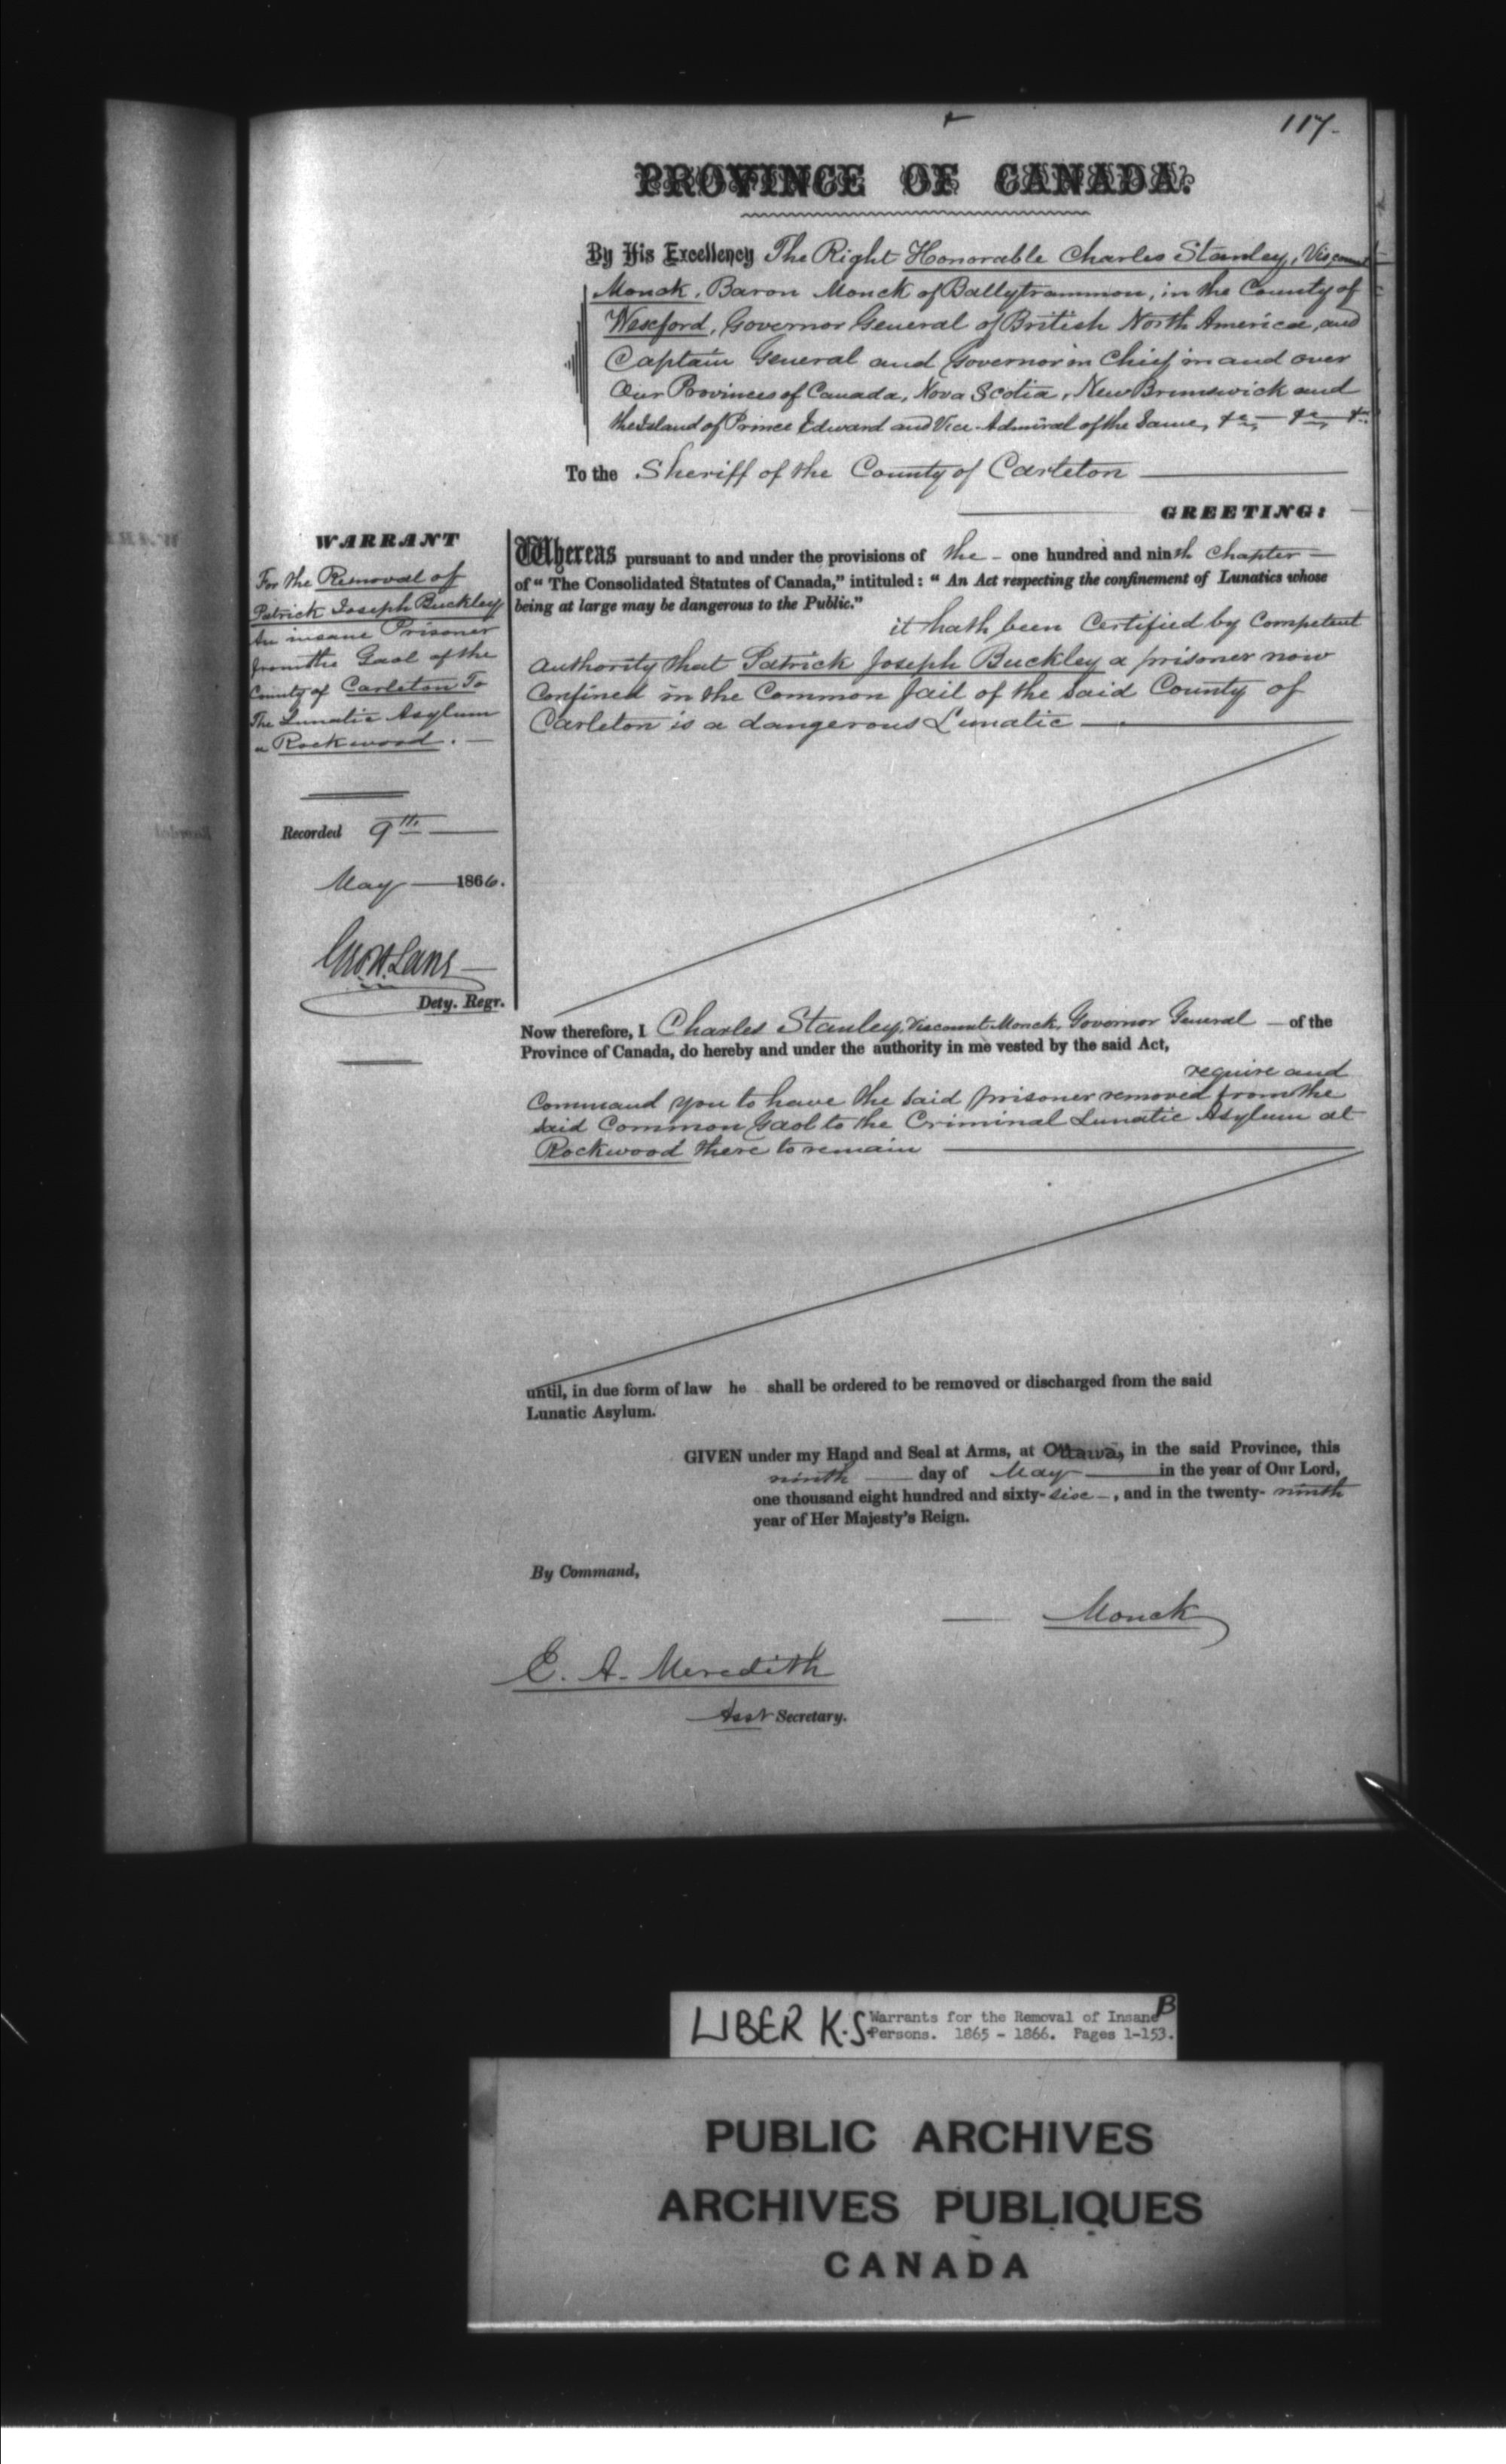 117.
PROVINCE OF CANADA.
By His Excellency The Right Honorable Charles Stanley, Viscount
Monck, Baron Monck of Ballytrammon, in the County of
Wexford, Governor General of British North America, and
Captain General and Governor in Chief in and over
Our Provinces of Canada, Nova Scotia, New Brunswick and
the Island of Prince Edward and Vice Admiral of the Same, &c, — &c, &c
To the Sheriff of the County of Carleton
GREETING:
WARRANT
For the Removal of
Patrick Joseph Buckley
An insane Prisoner
from the Gaol of the
County of Carleton To
The Lunatic Asylum
a Rockwood. —
Recorded 9th
May 1866.
Geo H. Lane
Dety. Regr.
Whereas pursuant to and under the provisions of the - one hundred and ninth Chapter —
of "The Consolidated Statutes of Canada," intituled: "An Act respecting the confinement of Lunatics whose
being at large may be dangerous to the Public."
it hath been Certified by Competent
authority that Patrick Joseph Buckley a prisoner now
Confined in the Common Jail of the said County of
Carleton is a dangerous Lunatic
Now therefore, I Charles Stanley, Viscount Monck, Governor General — of the
Province of Canada, do hereby and under the authority in me vested by the said Act,
require and
Command you to have the said prisoner removed from the
said Common Gaol to the Criminal Lunatic Asylum at
Rockwood there to remain
until, in due form of law he shall be ordered to be removed or discharged from the said
Lunatic Asylum.
GIVEN under my Hand and Seal at Arms, at Ottawa, in the said Province, this
ninth day of May in the year of Our Lord,
one thousand eight hundred and sixty-six —, and in the twenty-ninth
year of Her Majesty's Reign.
By Command,
Monck
E. A. Meredith
Asst Secretary.
LIBER K.S. Warrants for the Removal of Insane B
Persons. 1865 - 1866. Pages 1-153.
PUBLIC ARCHIVES
ARCHIVES PUBLIQUES
CANADA